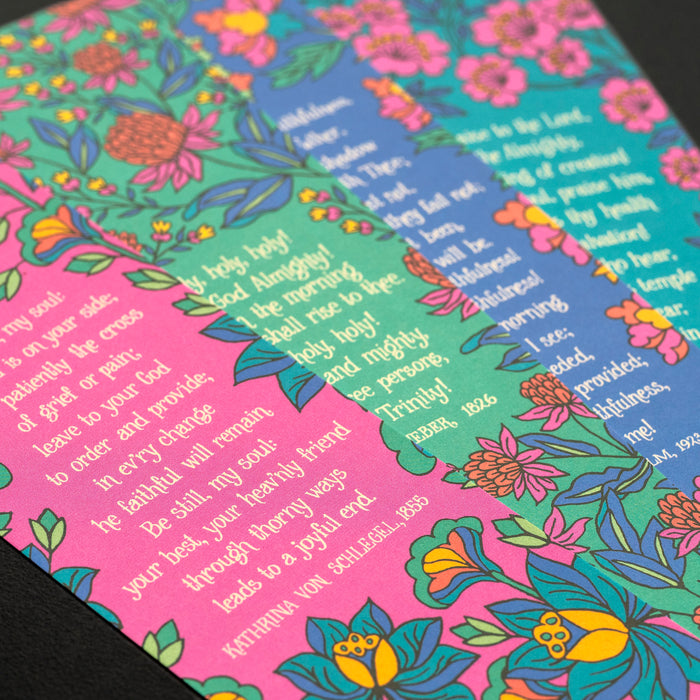 , my soul:
is on your side;
patiently the cross
of grief or pain;
leave to your God
to order and provide;
in ev'ry change
he faithful will remain.
Be still, my soul:
your best, your heav'nly friend
through thorny ways
leads to a joyful end.
KATHRINA VON SCHLEGEL, 1855
y, holy, holy!
God Almighty!
the morning
shall rise to thee.
holy, holy!
and mighty.
ee persons,
Trinity!
EBER, 1826
ithfulness,
ather,
shadow
h Thee;
st not,
they fail not;
been,
will be.
thfulness!
thfulness!
morning
I see;
eded,
provided;
thfulness,
me!
LM, 1923
ise to the Lord,
e Almighty,
ng of creation!
l, praise him,
thy health
lvation!
ho hear,
temple
ear,